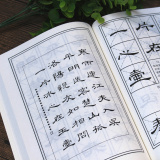 寒雨連江夜入吳
平明送客楚山孤
洛陽親友如相問
一片冰心在玉壺
心
壺